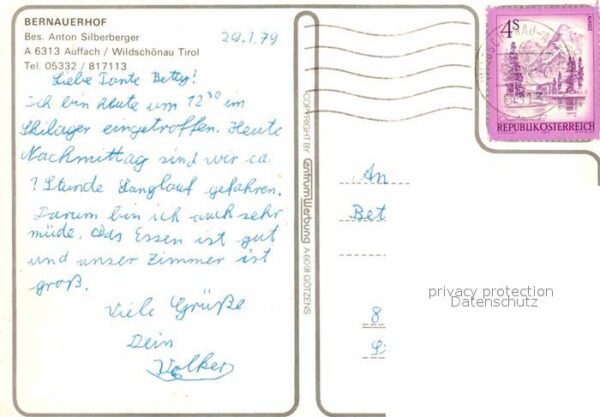 BERNAUERHOF
Bes. Anton Silberberger
A 6313 Auffach / Wildschönau Tirol
Tel. 05332 / 817113
29.1.79
Liebe Tante Betty!
Ich bin heute um 12³⁰ im
Skilager eingetroffen. Heute
Nachmittag sind wir ca.
1 Stunde Langlauf gefahren.
Darum bin ich auch sehr
müde. Das Essen ist gut
und unser Zimmer ist
groß.
Viele Grüße
Dein
Volker
COPYRIGHT BY
A 6091 GÖTZENS
4S
REPUBLIK ÖSTERREICH
An
Bet
8
privacy protection
Datenschutz